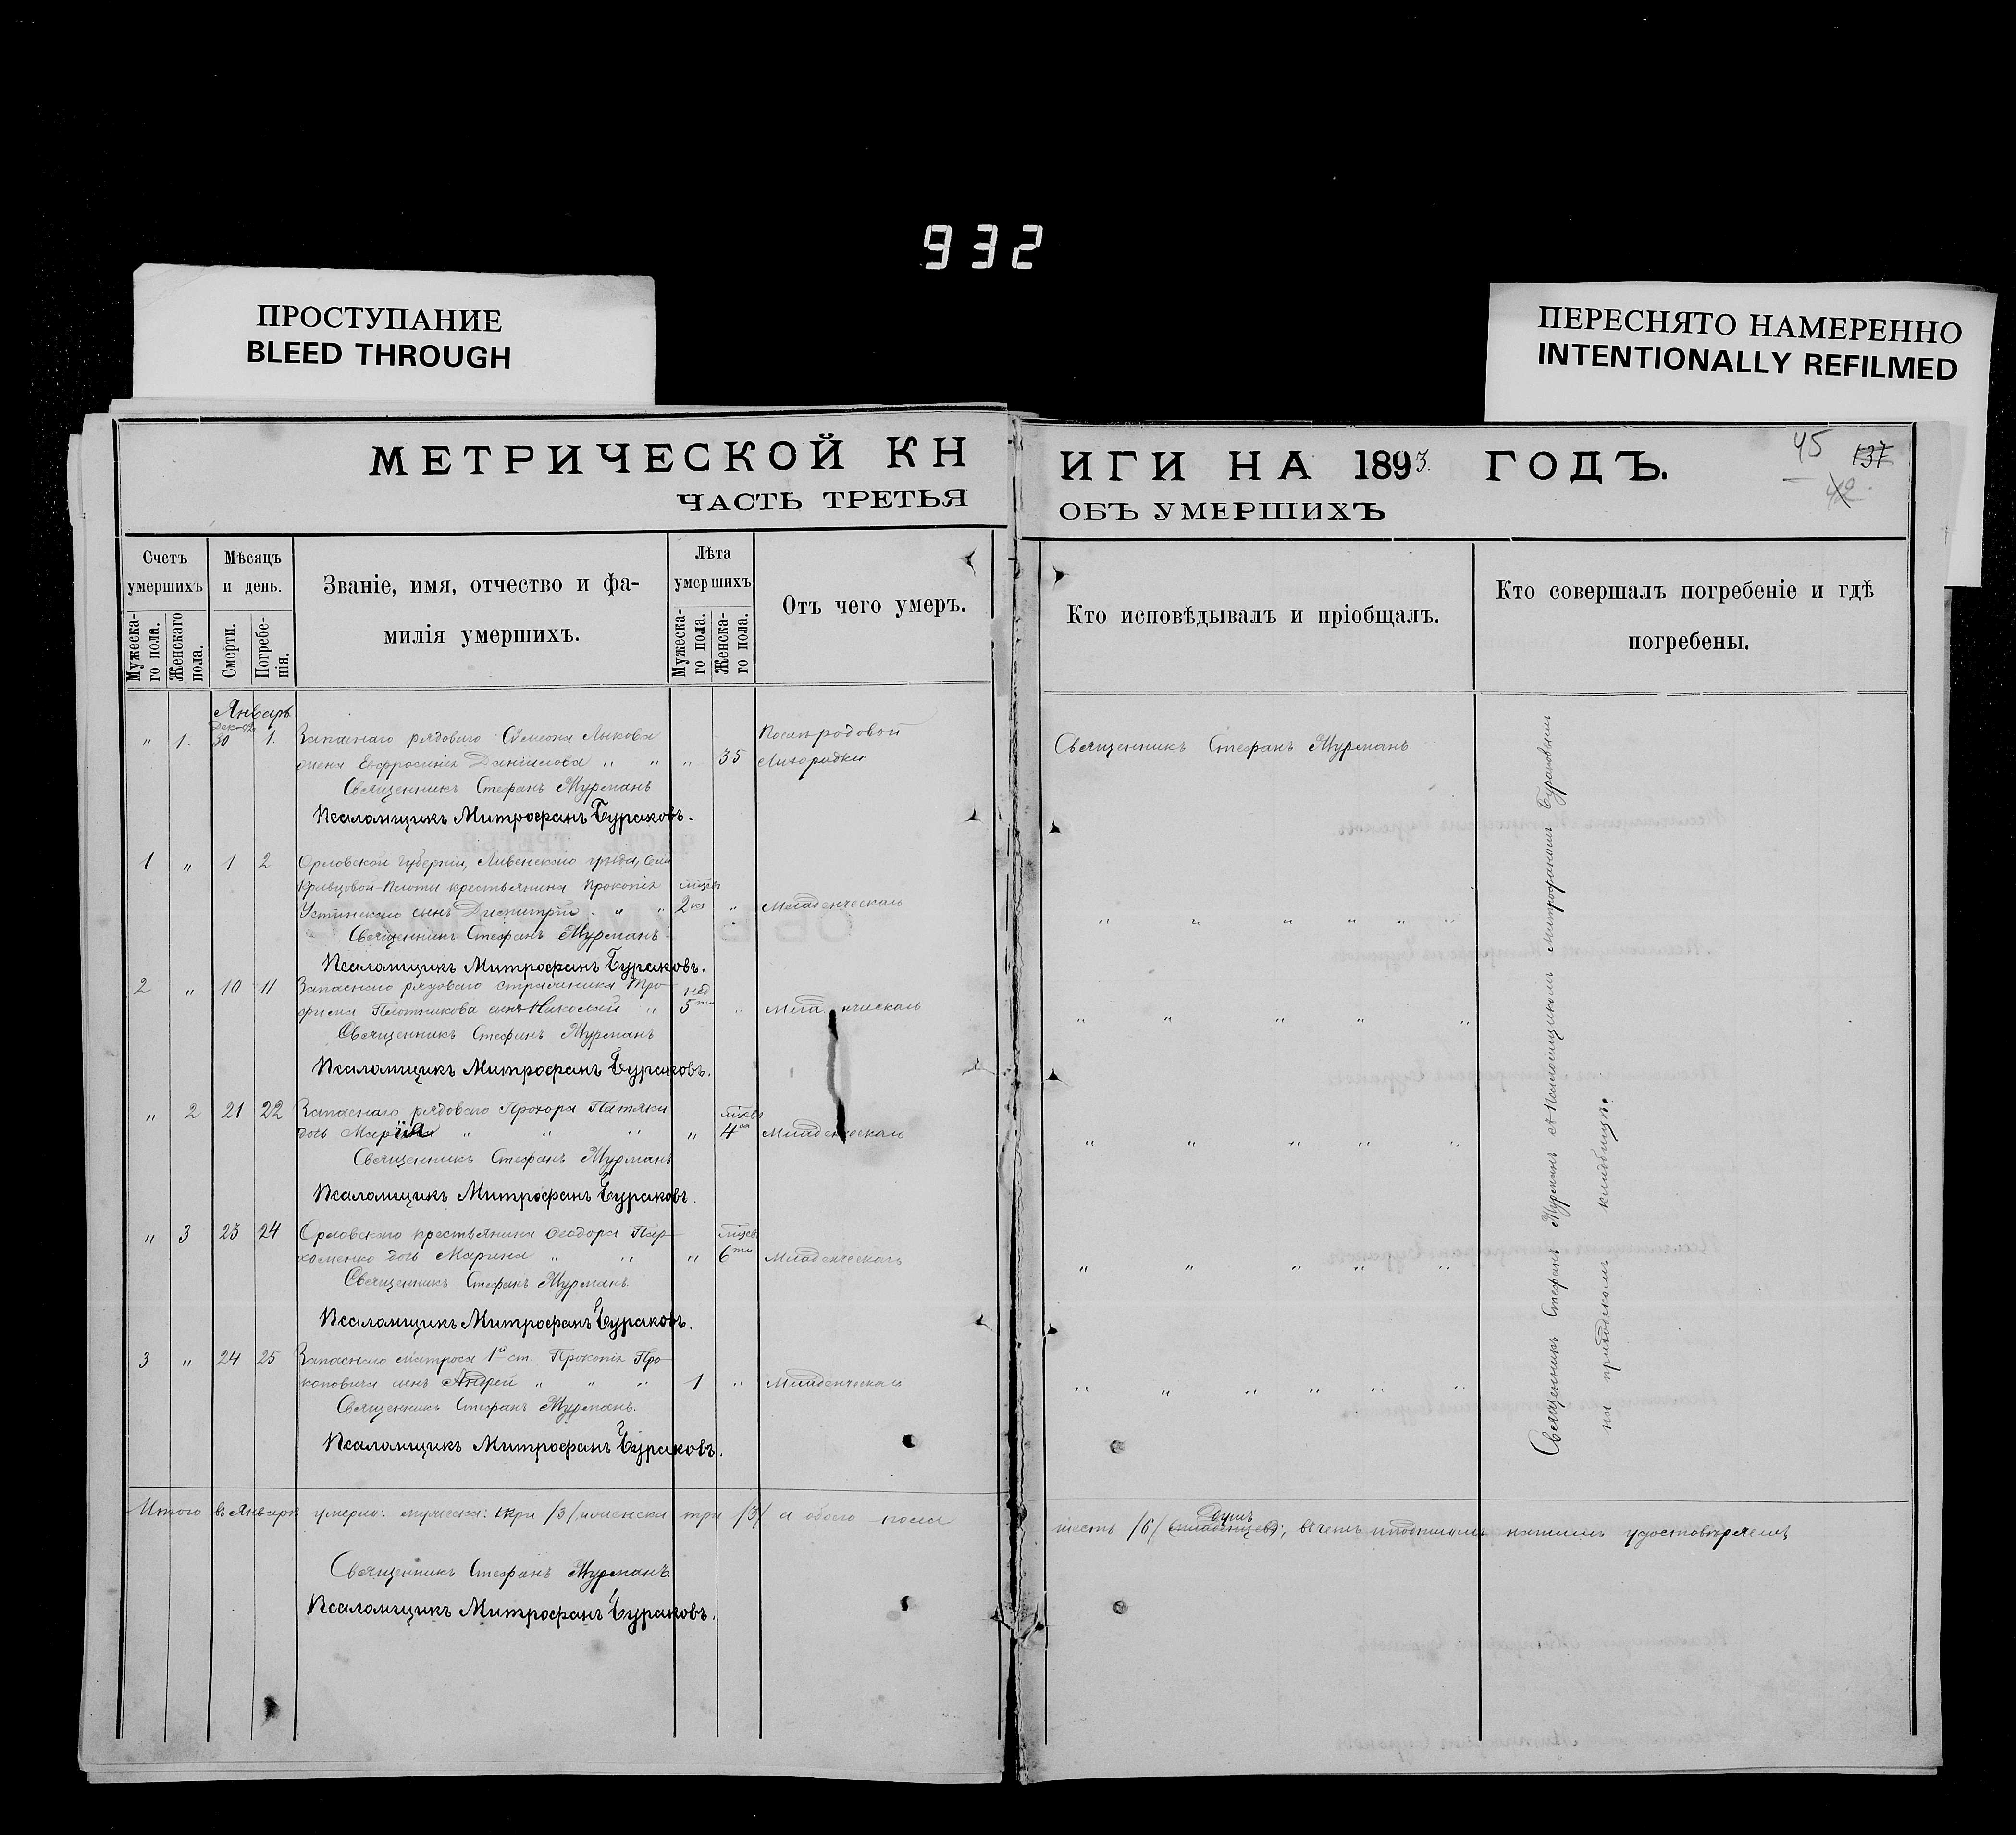 932
ПРОСТУПАНИЕ
BLEED THROUGH
ПЕРЕСНЯТО НАМЕРЕННО
INTENTIONALLY REFILMED
МЕТРИЧЕСКОЙ КН
ЧАСТЬ ТРЕТЬЯ
Счетъ умершихъ
Мужеска-го пола.
Женскаго пола.
Мѣсяцъ и день.
Смерти.
Погребе-нія.
Званіе, имя, отчество и фа-
милія умершихъ.
Лѣта умершихъ
Мужеска-го пола.
Женска-го пола.
Отъ чего умеръ.
Январь
Дек. 92
" 1. 30 1. Запаснаго рядоваго Симеона Лыкова Послѣродовой
жена Евфросинія Даніилова " " " 35 лихорадки
Священникъ Стефанъ Мурманъ
Псаломщикъ Митрофанъ Бураковъ.
1 " 1 2 Орловской губерніи, Ливенскаго уѣзда, села
Кривцовой-Плоты крестьянина Прокопія мѣсяц
Устинскаго сынъ Димитрій " " 2хъ " Младенческая
Священникъ Стефанъ Мурманъ
Псаломщикъ Митрофанъ Бураковъ.
2 " 10 11 Запаснаго рядоваго стражника Тро- нед
фима Плотникова сынъ Николай " 5ти " Младенческая
Священникъ Стефанъ Мурманъ
Псаломщикъ Митрофанъ Бураковъ.
" 2 21 22 Запаснаго рядоваго Прохора Патяки мѣсяц
дочь Марія " " " " 4 Младенческая
Священникъ Стефанъ Мурманъ
Псаломщикъ Митрофанъ Бураковъ.
" 3 23 24 Орловскаго крестьянина Ѳеодора Пар- мѣсяц
хоменко дочь Марина " " " 6ти Младенческая
Священникъ Стефанъ Мурманъ
Псаломщикъ Митрофанъ Бураковъ.
3 " 24 25 Запаснаго матроса 1й ст. Прокопія Про-
коповича сынъ Андрей " " " 1 " Младенческая
Священникъ Стефанъ Мурманъ.
Псаломщикъ Митрофанъ Бураковъ.
Итого въ Январѣ умерло: мужеска: три /3/, женска три /3/ а обоего пола
Священникъ Стефанъ Мурманъ
Псаломщикъ Митрофанъ Бураковъ.
ИГИ НА 1893. ГОДЪ.
45 137
42
ОБЪ УМЕРШИХЪ
Кто исповѣдывалъ и пріобщалъ.
Кто совершалъ погребеніе и гдѣ
погребены.
Священникъ Стефанъ Мурманъ.
" " " " " "
" " " " "
" " " " "
" " " " "
" " " " " "
Священникъ Стефанъ Мурманъ съ Псаломщикомъ Митрофаномъ Бураковымъ
на приходскомъ кладбищѣ.
душъ
шесть /6/ младенцевъ, въ чемъ подписомъ нашимъ удостовѣряемъ